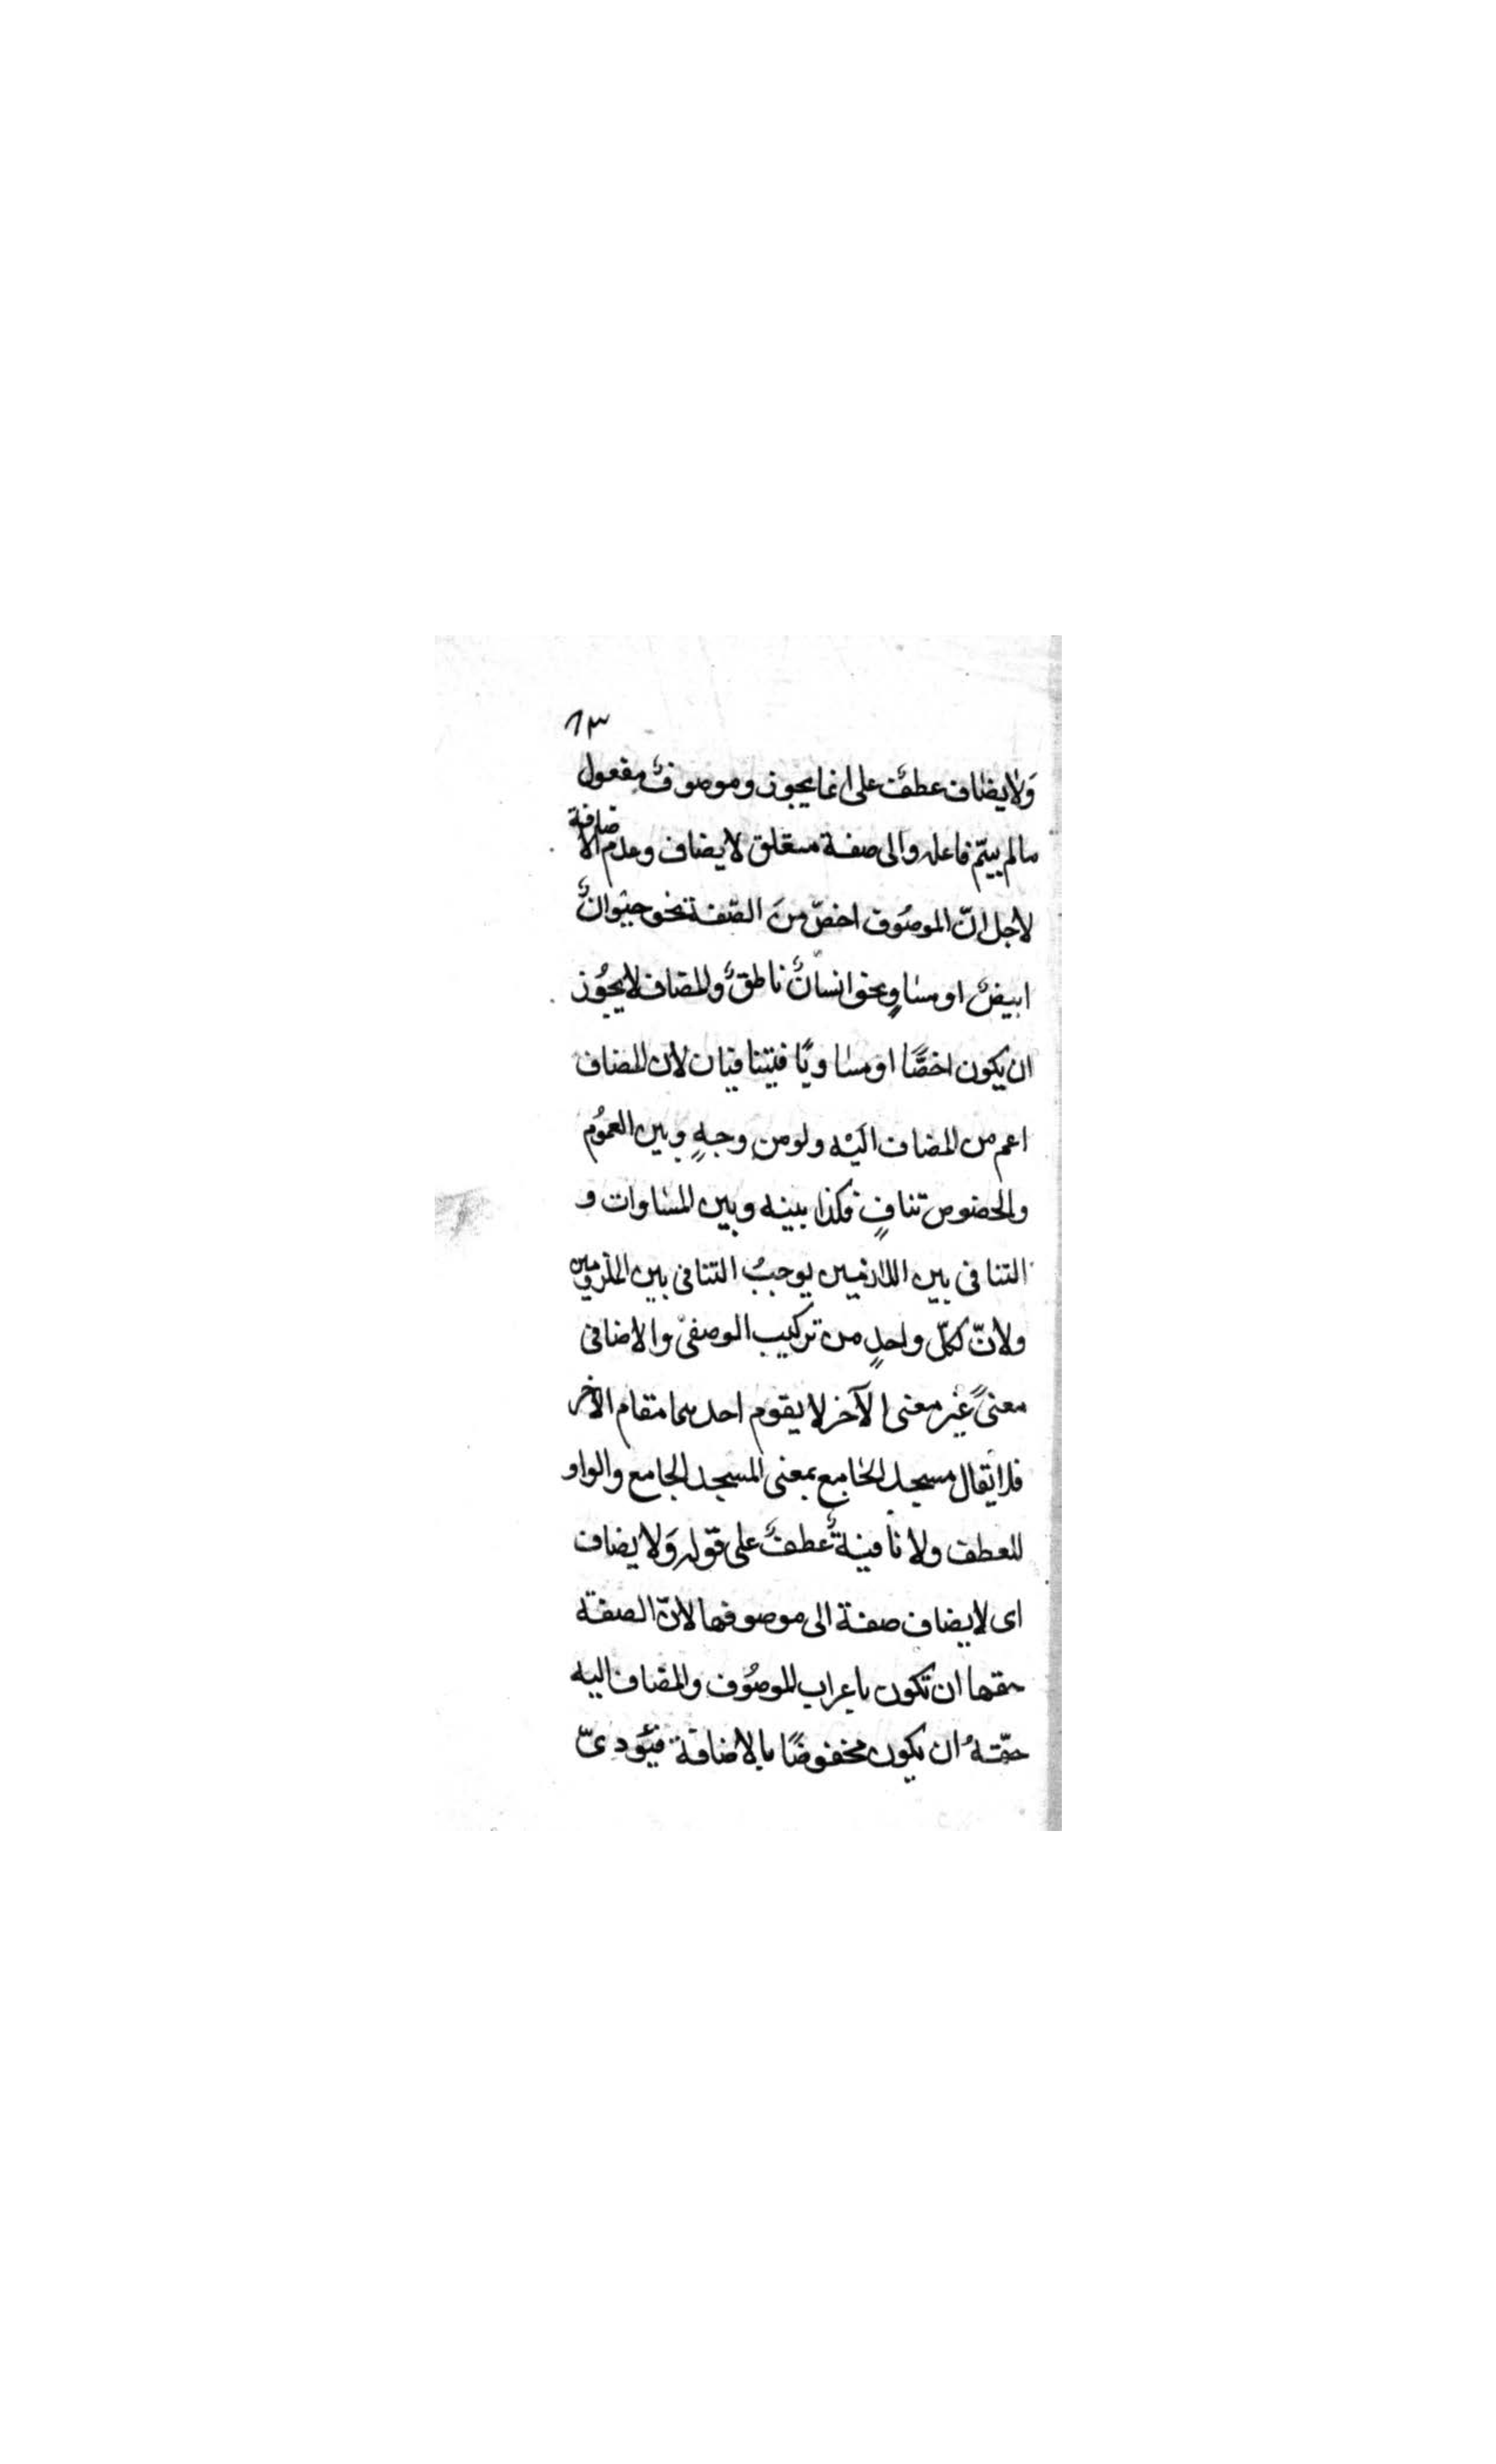 ٦٣
وَلا يضاف عطفٌ على انما يجوز وموصوفٌ مفعول
مالم يسمّ فاعله والى صفة متعلق لا يضاف وعدم الاضافة
لاجل انّ الموصُوف اخصّ منَ الصّفة نحو حيْوانٌ
ابيضٌ او مساوٍ نحو انسانٌ ناطقٌ والمضاف لا يجُوز
ان يكون اخصًّا او مساويًا فيتنافيان لان المضاف
اعم من المضاف اليْه ولو من وجهٍ وبين العمُوم
والخصوص تنافٍ فكذا بينه وبين المساوات و
التنافى بين اللازمين يوجبُ التنافى بين الملزومين
ولانّ لكلّ واحدٍ من تركيب الوصفىْ والاضافى
معنىً غير معنى الآخر لا يقوم احدهما مقام الآخر
فلا يقال مسجد الجامع بمعنى المسجد الجامع والواو
للعطف ولا نافيةٌ عطفٌ على قوله وَلا يضاف
اى لا يضاف صفة الى موصوفها لانّ الصفة
حقها ان تكون باعراب الموصُوف والمضاف اليه
حقّهُ ان يكون مخفوضًا بالاضافة فيؤدىّ